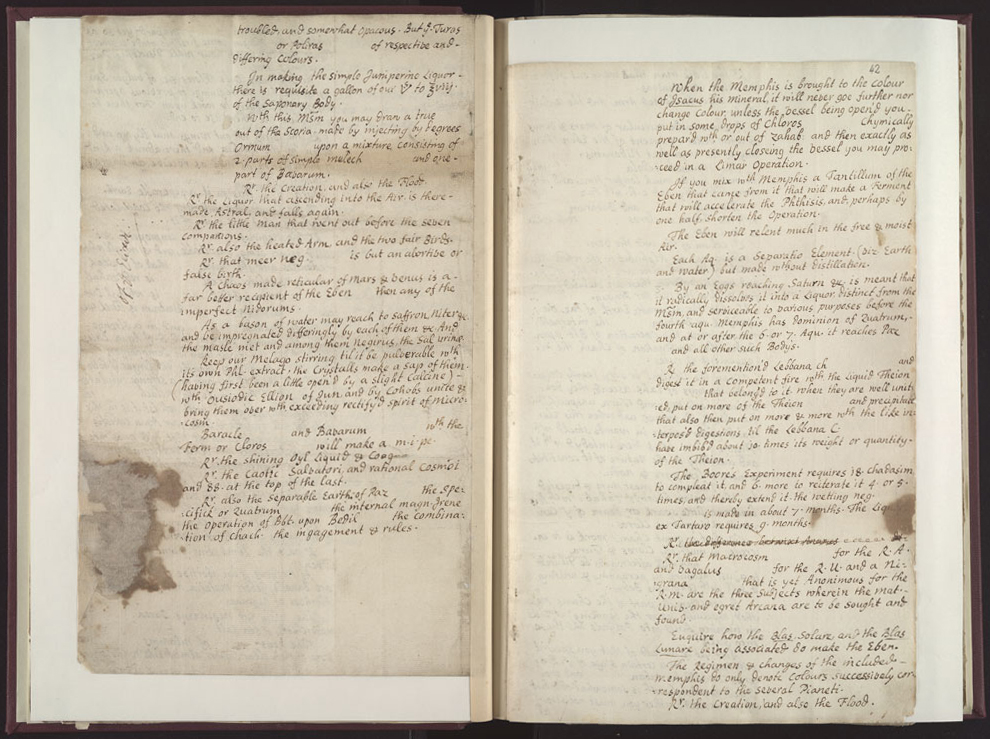 troubled, and somewhat opacous. But ye Turos
or Poliras of respective and
differing Colours.
In making the simple Juniperine Liquor
there is requisite a gallon of our to ʒviij
of the Saponary Body.
With this Msm you may draw a true
out of the Scoria, made by injecting by degrees
Ormum upon a mixture consisting of
2 parts of simple melech and one
part of Babarum.
Rr. the Creation, and also the Flood
Rr the Liquor that ascending into the Air is there
made Astral, and falls again.
Rr. the little Man that went out before the seven
companions.
Rr. also the heated Arm and the two fair Birds.
Rr. that meer neg. is but an abortive or
false birth.
A Chaos made reticular of Mars & Venus is a
far better recipient of the Eben then any of the
imperfect Nidorums.
As a bason of water may reach to saffron, Niter &c.
and be impregnated differingly by each of them &c. And
the masle met and among them Negirus, the Sal urinæ
Keep our Melago stirring til it be pulverable with
its own Phl. extract, the Crystalls make a sap of them
(having first been a little open'd by a slight Calcine)
with Ousiodic Ellion of Jun, and by Cohobs unite &
bring them over wth exceeding rectify'd spirit of Micro-
cosm.
Baracle and Babarum with the
Ferm or Cloros will make a m.i.pe.
Rr. the shining Oyl Liquid & Coag
Rr. the Caotic Salvatori, and rational Cosmol
and 88. at the top of the last.
Rr. also the separable Earth of Paz the spe-
cifick or Quatrum the internal magn. Irene
the operation of Bbt. upon Bedil the Combina-
tion of Chach. the ingagement & rules.
42
When the Memphis is brought to the Colour
of Isaeus his Mineral, it will never goe further nor
change Colour, unless the Vessel being open'd you
put in some drops of Chloros Chymically
prepar'd wth or out of Zahab. and then exactly as
well as presently closeing the Vessel you may pro-
ceed in a Limar Operation.
If you mix wth Memphis a Tantillum of the
Eben that came from it that will make a Ferment
that will accelerate the Phthisis, and, perhaps by
one half, shorten the Operation.
The Eben will relent much in the free & moist
Air.
Each Aq. is a Separatio Element. (viz Earth
and Water) but made without distillation.
By an Eggs reaching Saturn &c. is meant that
it radically dissolves it into a Liquor distinct from the
Msm, and serviceable to various purposes before the
fourth aqu. Memphis has dominion of Quatrum,
and at or after the 6. or 7. Aqu. it reaches Paz
and all other such Bodys.
R. the foremention'd Lebbana ch and
digest it in a competent fire with the Liquid Theion
that belong'd to it. When they are well unit-
ed, put on more of the Theion and precipitate
that also then put on more & more with the like in-
terpos'd digestions, til the Lebbana C:
have imbib'd about 10 times its weight or quantity
of the Theion.
The Boores Experiment requires 18. chadasim
to compleat it, and 6. more to reiterate it 4. or 5.
times, and thereby extend it. the wetting neg.
is made in about 7. months. The Liq
ex Tartaro requires 9. months.
Rr. the difference betwixt Ananas
Rr. that Macrocosm for the R. A.
and Dagalus for the R. U. and a Ni-
grana that is yet Anonimous for the
R. m. are the three Subjects wherein the mat.
Unis. and egret Arcana are to be sought and
found.
Enquire how the Blas Solare and the Blas
Lunare being associated do make the Eben.
The Regimen & changes of the included
Memphis to only denote Colours successively cor-
respondent to the several Planeti.
Rr. the Creation, and also the Flood.